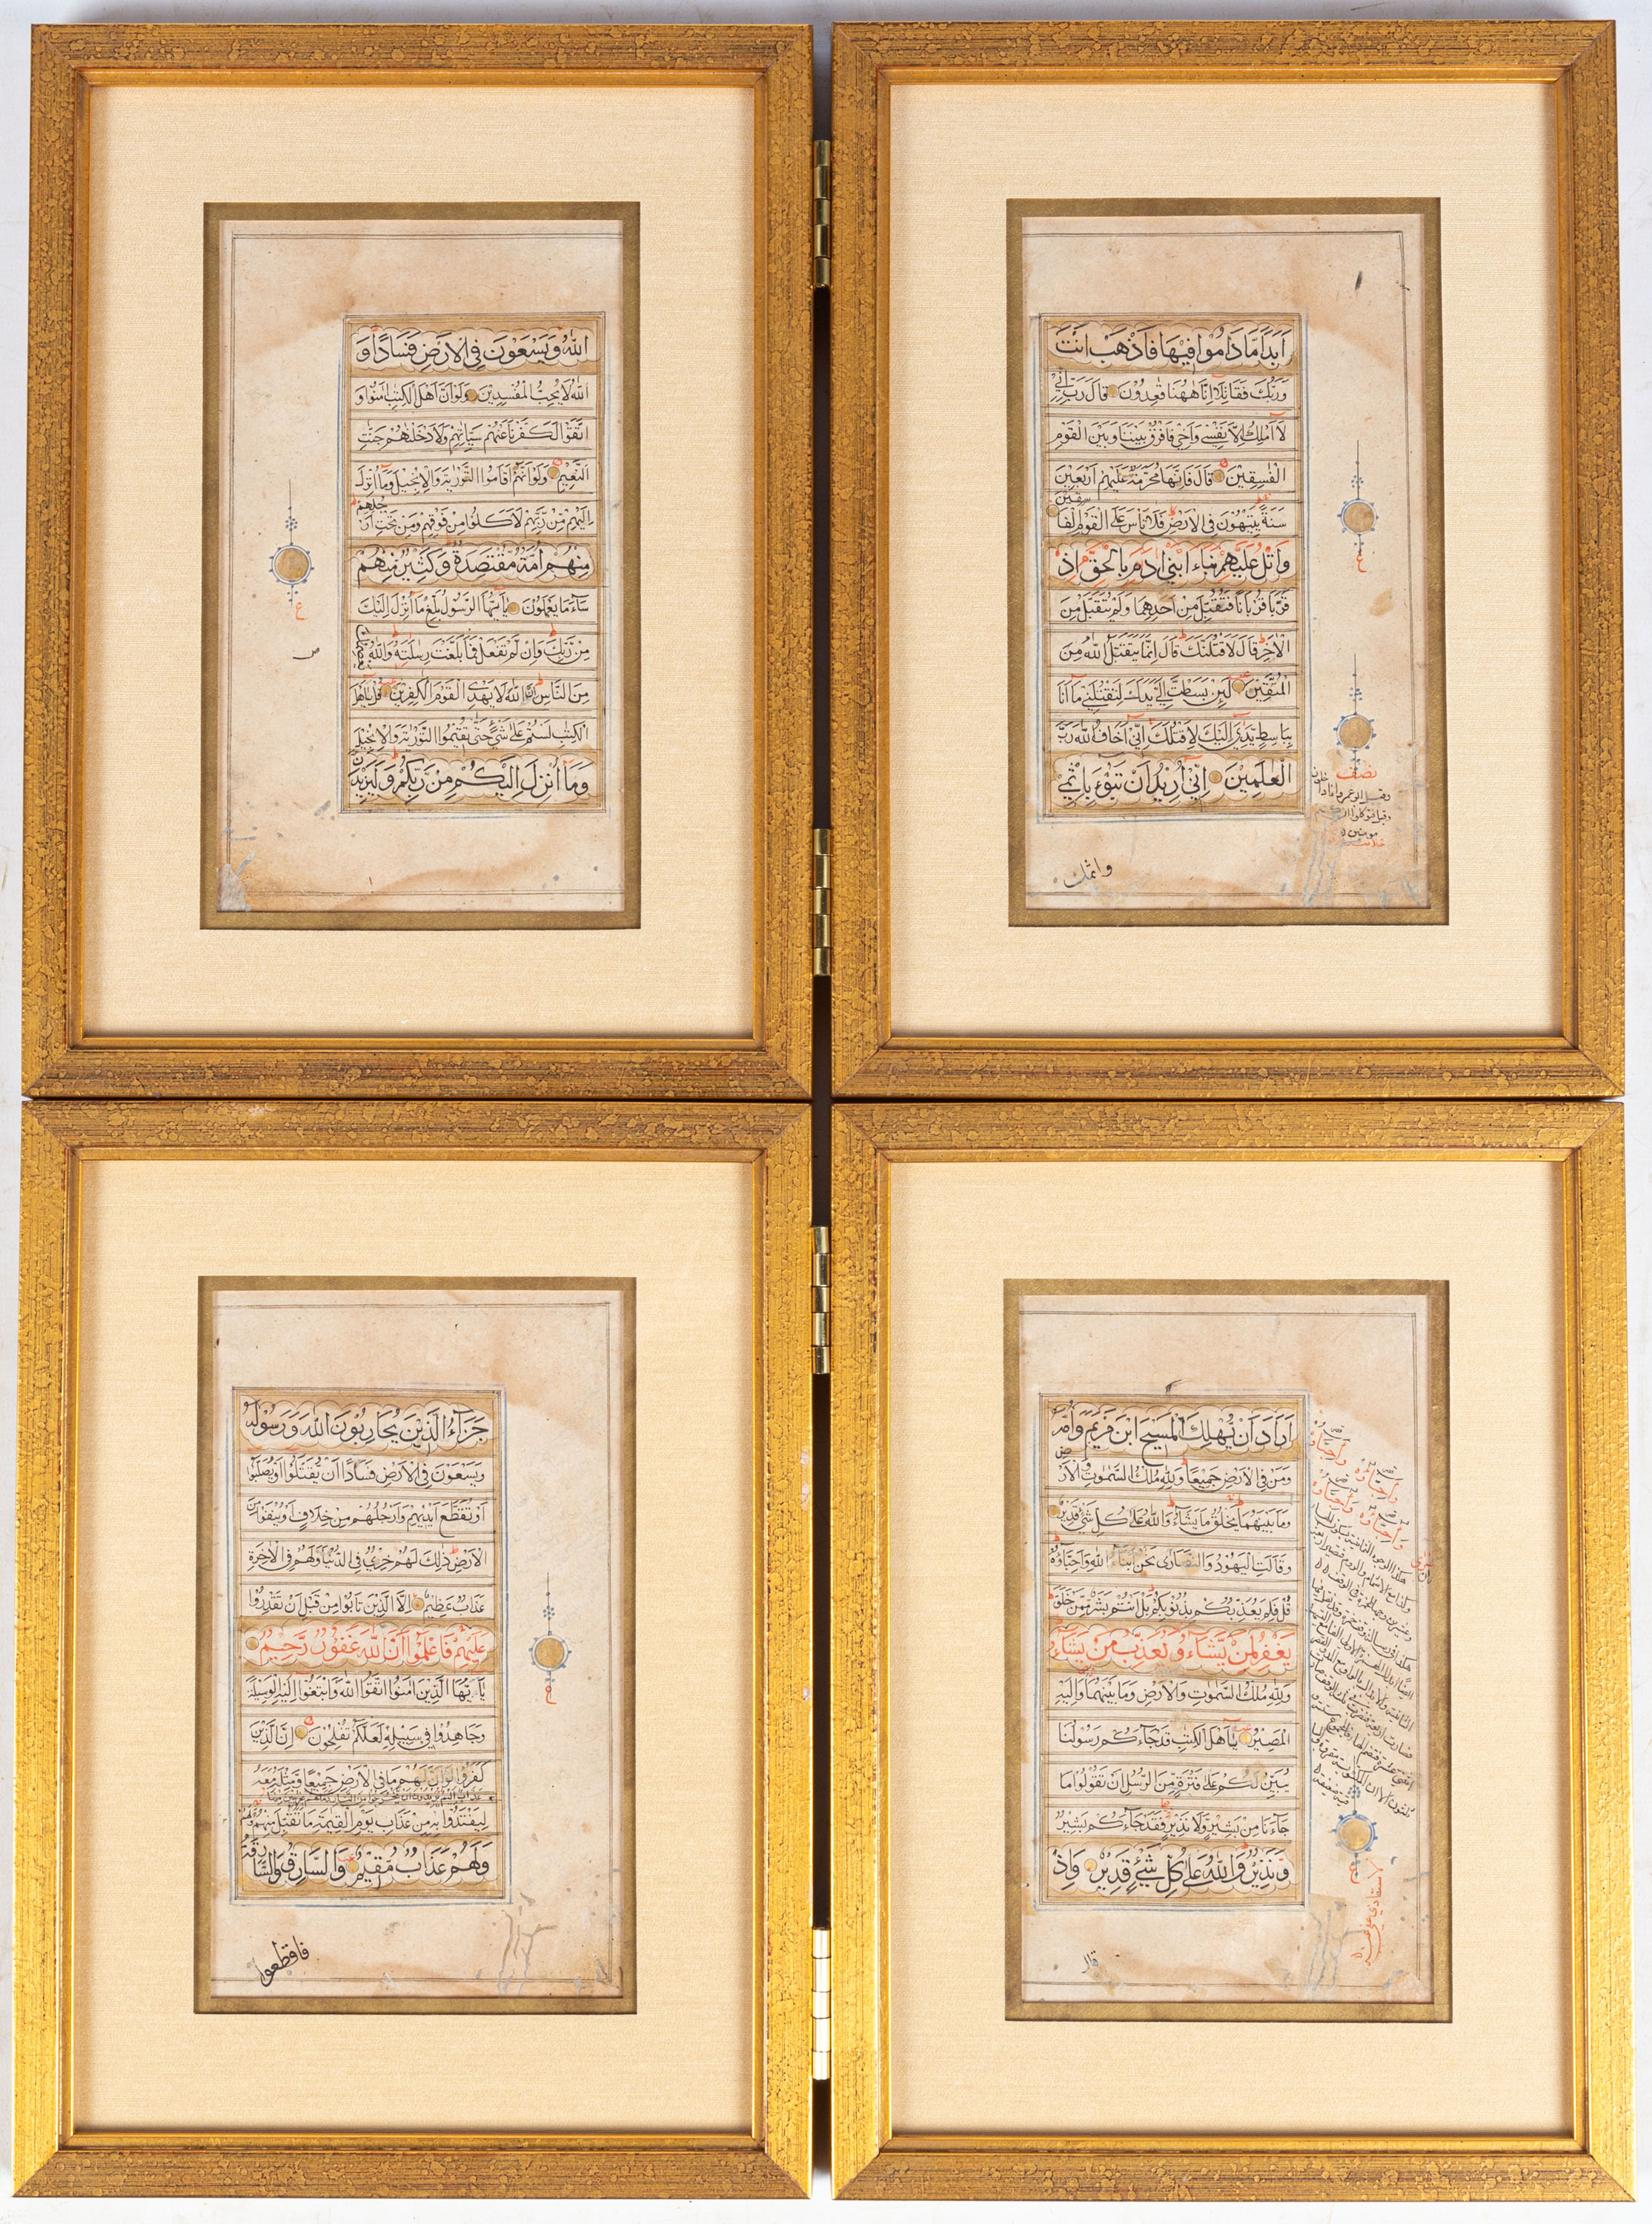 الله وَيَسْعَوْنَ فِي الْاَرْضِ فَسَادًا وَ
الله لَا يُحِبُّ الْمُفْسِدِيْنَ وَلَوْ اَنَّ اَهْلَ الْكِتٰبِ اٰمَنُوْا وَ
اتَّقَوْا لَكَفَّرْنَا عَنْهُمْ سَيِّاٰتِهِمْ وَلَاَدْخَلْنٰهُمْ جَنّٰتِ
النَّعِيْمِ وَلَوْ اَنَّهُمْ اَقَامُوا التَّوْرٰيةَ وَالْاِنْجِيْلَ وَمَآ اُنْزِلَ
اِلَيْهِمْ مِّنْ رَّبِّهِمْ لَاَكَلُوْا مِنْ فَوْقِهِمْ وَمِنْ تَحْتِ اَرْ
جُلِهِمْ
مِنْهُمْ اُمَّةٌ مُّقْتَصِدَةٌ وَكَثِيْرٌ مِّنْهُمْ
سَآءَ مَا يَعْمَلُوْنَ يٰٓاَيُّهَا الرَّسُوْلُ بَلِّغْ مَآ اُنْزِلَ اِلَيْكَ
مِنْ رَّبِّكَ وَاِنْ لَّمْ تَفْعَلْ فَمَا بَلَّغْتَ رِسٰلَتَهُ وَاللهُ
يَعْصِمُكَ
مِنَ النَّاسِ اِنَّ اللهَ لَا يَهْدِى الْقَوْمَ الْكٰفِرِيْنَ قُلْ يٰٓاَهْلَ
الْكِتٰبِ لَسْتُمْ عَلٰى شَيْءٍ حَتّٰى تُقِيْمُوا التَّوْرٰيةَ وَالْاِنْجِيْلَ
وَمَآ اُنْزِلَ اِلَيْكُمْ مِنْ رَّبِّكُمْ وَلَيَزِيْدَنَّ
ع
اَبَدًا مَّا دَامُوْا فِيْهَا فَاذْهَبْ اَنْتَ
وَرَبُّكَ فَقَاتِلَآ اِنَّا هٰهُنَا قٰعِدُوْنَ قَالَ رَبِّ اِنِّيْ
لَآ اَمْلِكُ اِلَّا نَفْسِيْ وَاَخِيْ فَافْرُقْ بَيْنَنَا وَبَيْنَ الْقَوْمِ
الْفٰسِقِيْنَ قَالَ فَاِنَّهَا مُحَرَّمَةٌ عَلَيْهِمْ اَرْبَعِيْنَ
سَنَةً يَتِيْهُوْنَ فِي الْاَرْضِ فَلَا تَاْسَ عَلَى الْقَوْمِ الْفَا
سِقِيْنَ
وَاتْلُ عَلَيْهِمْ نَبَاَ ابْنَيْ اٰدَمَ بِالْحَقِّ اِذْ
قَرَّبَا قُرْبَانًا فَتُقُبِّلَ مِنْ اَحَدِهِمَا وَلَمْ يُتَقَبَّلْ مِنَ
الْاٰخَرِ قَالَ لَاَقْتُلَنَّكَ قَالَ اِنَّمَا يَتَقَبَّلُ اللهُ مِنَ
الْمُتَّقِيْنَ لَئِنْ بَسَطْتَّ اِلَيَّ يَدَكَ لِتَقْتُلَنِيْ مَآ اَنَا
بِبَاسِطٍ يَّدِيَ اِلَيْكَ لِاَقْتُلَكَ اِنِّيْ اَخَافُ اللهَ رَبَّ
الْعٰلَمِيْنَ اِنِّيْ اُرِيْدُ اَنْ تَبُوْٓءَ بِاِثْمِيْ
ع
نصف
واثمك
جَزٰٓؤُا الَّذِيْنَ يُحَارِبُوْنَ اللهَ وَرَسُوْلَهُ
وَيَسْعَوْنَ فِي الْاَرْضِ فَسَادًا اَنْ يُّقَتَّلُوْٓا اَوْ يُصَلَّبُوْٓا
اَوْ تُقَطَّعَ اَيْدِيْهِمْ وَاَرْجُلُهُمْ مِنْ خِلَافٍ اَوْ يُنْفَوْا مِنَ
الْاَرْضِ ذٰلِكَ لَهُمْ خِزْيٌ فِي الدُّنْيَا وَلَهُمْ فِي الْاٰخِرَةِ
عَذَابٌ عَظِيْمٌ اِلَّا الَّذِيْنَ تَابُوْا مِنْ قَبْلِ اَنْ تَقْدِرُوْا
عَلَيْهِمْ فَاعْلَمُوْٓا اَنَّ اللهَ غَفُوْرٌ رَّحِيْمٌ
يٰٓاَيُّهَا الَّذِيْنَ اٰمَنُوا اتَّقُوا اللهَ وَابْتَغُوْٓا اِلَيْهِ الْوَسِيْلَةَ
وَجَاهِدُوْا فِيْ سَبِيْلِهٖ لَعَلَّكُمْ تُفْلِحُوْنَ اِنَّ الَّذِيْنَ
كَفَرُوْا لَوْ اَنَّ لَهُمْ مَا فِي الْاَرْضِ جَمِيْعًا وَّمِثْلَهُ مَعَهُ
لِيَفْتَدُوْا بِهٖ مِنْ عَذَابِ يَوْمِ الْقِيٰمَةِ مَا تُقُبِّلَ مِنْهُمْ وَلَهُمْ
وَلَهُمْ عَذَابٌ مُّقِيْمٌ وَالسَّارِقُ وَالسَّارِقَةُ
فاقطعوا
اَرَادَ اَنْ يُّهْلِكَ الْمَسِيْحَ ابْنَ مَرْيَمَ وَاُمَّهُ
وَمَنْ فِي الْاَرْضِ جَمِيْعًا وَلِلّٰهِ مُلْكُ السَّمٰوٰتِ وَالْاَرْضِ
وَمَا بَيْنَهُمَا يَخْلُقُ مَا يَشَآءُ وَاللهُ عَلٰى كُلِّ شَيْءٍ قَدِيْرٌ
وَقَالَتِ الْيَهُوْدُ وَالنَّصَارٰى نَحْنُ اَبْنٰٓؤُا اللهِ وَاَحِبَّآؤُهُ
قُلْ فَلِمَ يُعَذِّبُكُمْ بِذُنُوْبِكُمْ بَلْ اَنْتُمْ بَشَرٌ مِّمَّنْ خَلَقَ
يَغْفِرُ لِمَنْ يَّشَآءُ وَيُعَذِّبُ مَنْ يَّشَآءُ
وَلِلّٰهِ مُلْكُ السَّمٰوٰتِ وَالْاَرْضِ وَمَا بَيْنَهُمَا وَاِلَيْهِ
الْمَصِيْرُ يٰٓاَهْلَ الْكِتٰبِ قَدْ جَآءَكُمْ رَسُوْلُنَا
يُبَيِّنُ لَكُمْ عَلٰى فَتْرَةٍ مِّنَ الرُّسُلِ اَنْ تَقُوْلُوْا مَا
جَآءَنَا مِنْ بَشِيْرٍ وَّلَا نَذِيْرٍ فَقَدْ جَآءَكُمْ بَشِيْرٌ
وَّنَذِيْرٌ وَاللهُ عَلٰى كُلِّ شَيْءٍ قَدِيْرٌ وَاِذْ
قال